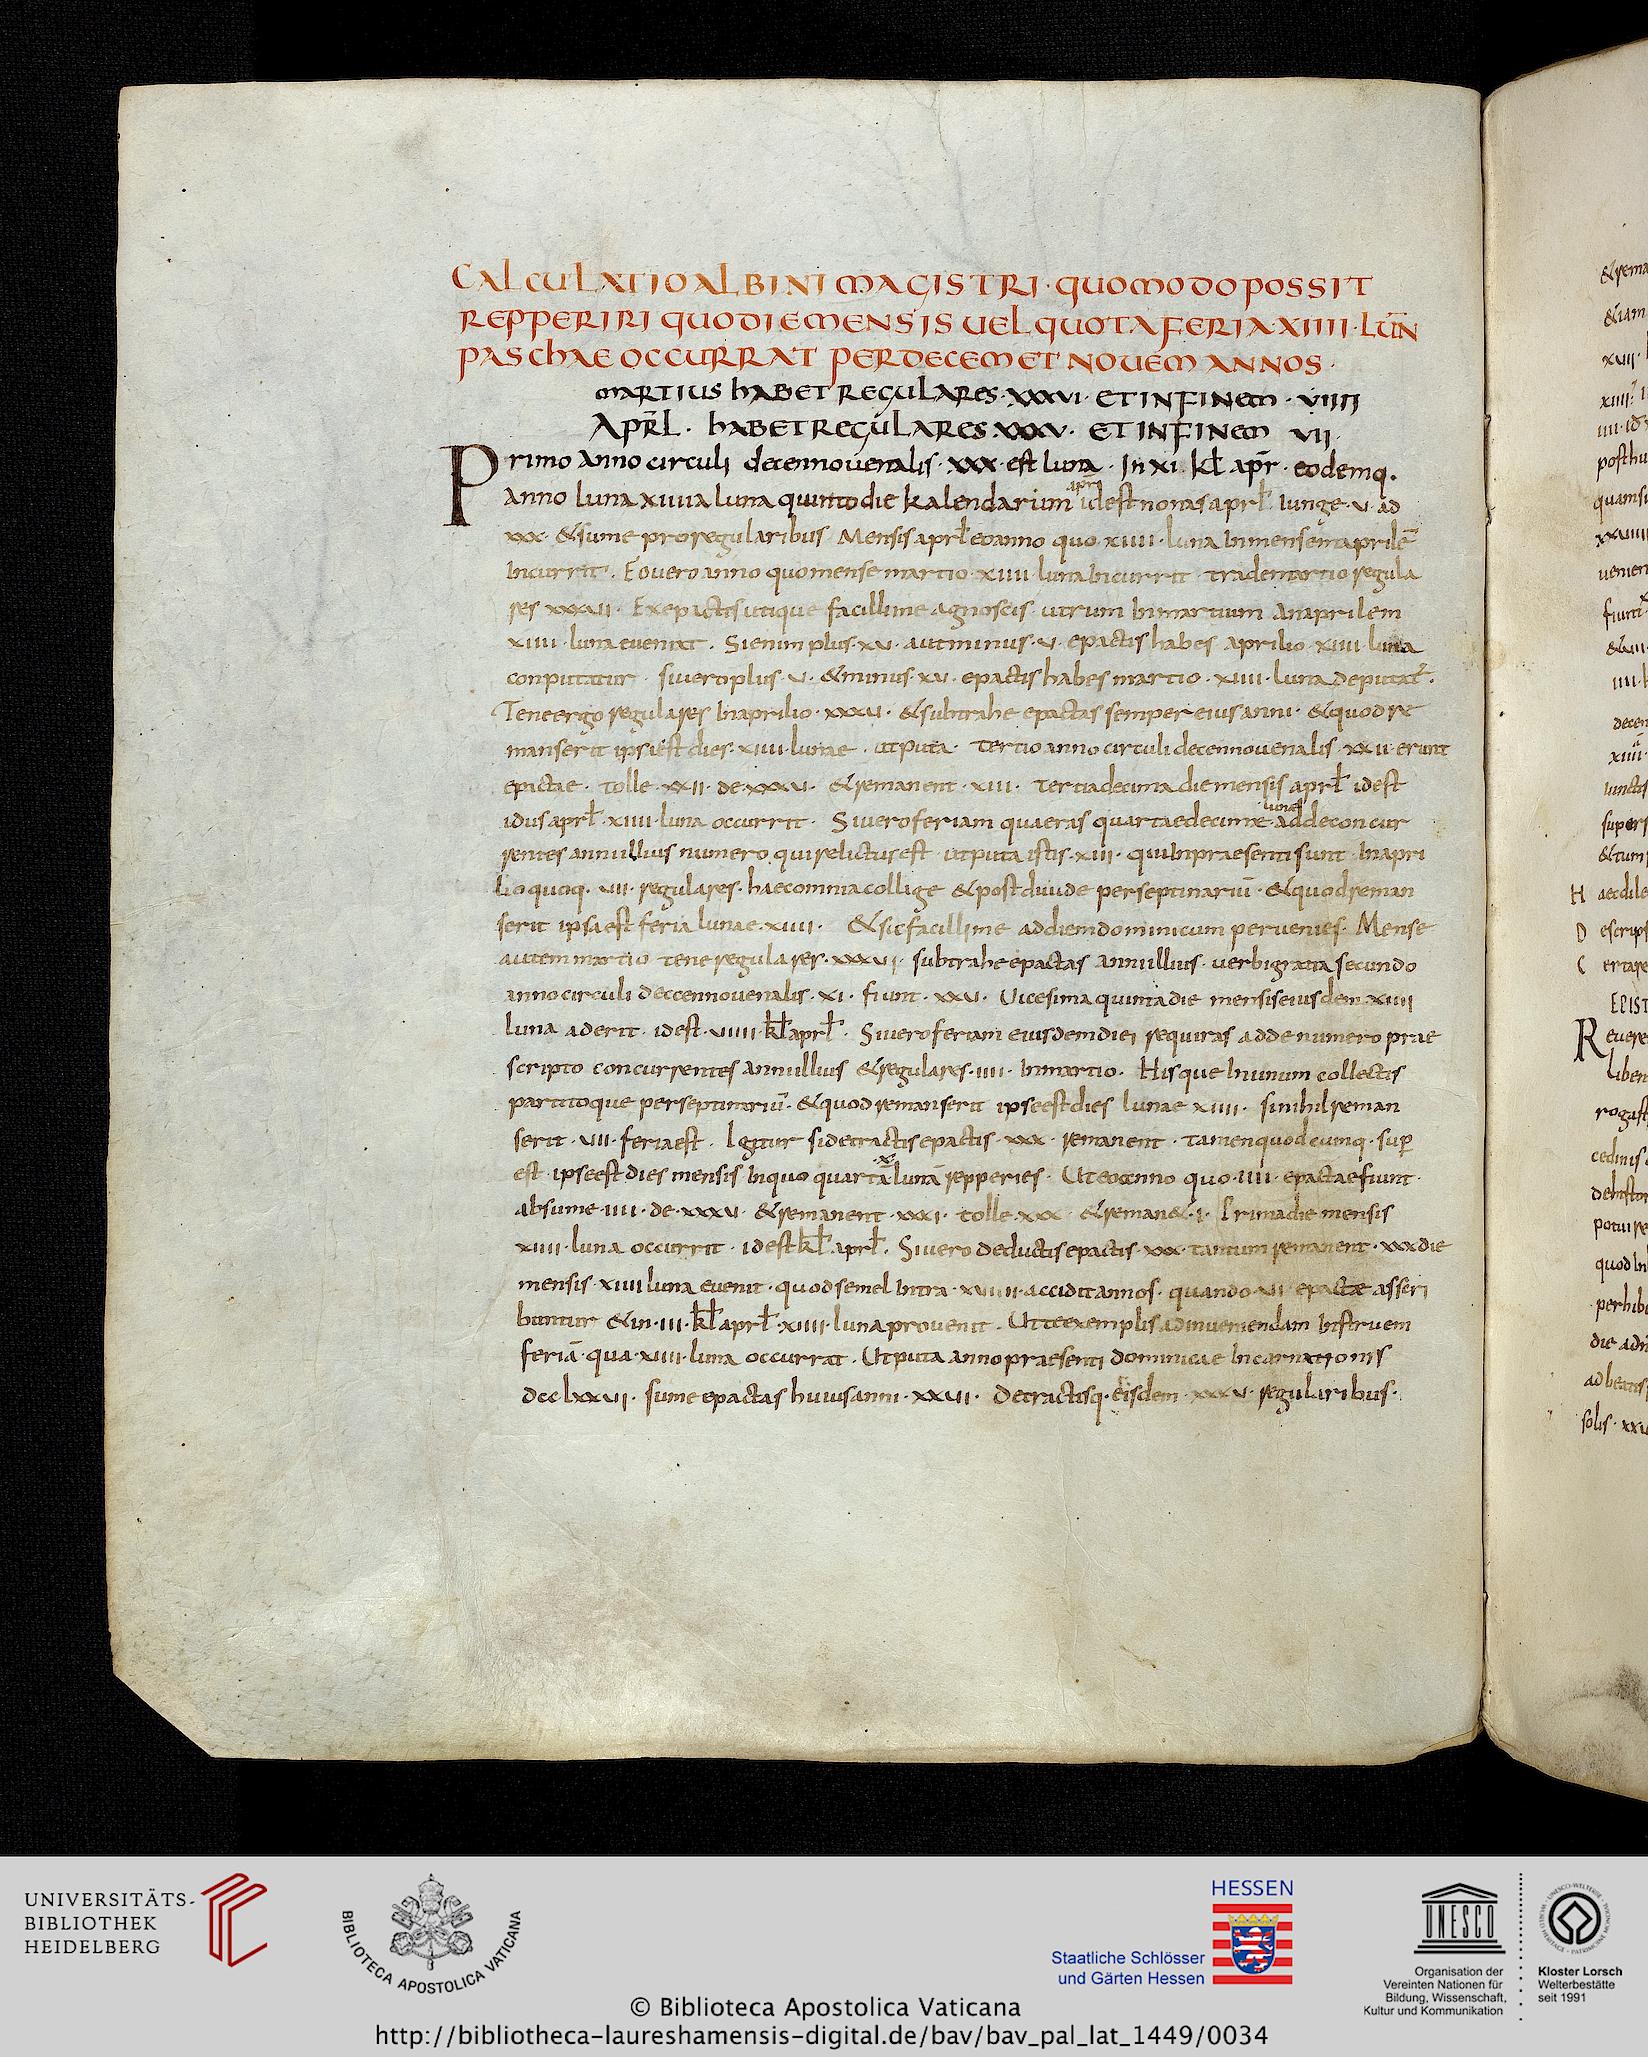 CALCULATIO ALBINI MAGISTRI · QUOMODO POSSIT
REPPERIRI QUO DIE MENSIS UEL QUOTA FERIA XIIII · LUN̄
PASCHAE OCCURRAT PER DECEM ET NOUEM ANNOS ·
MARTIUS HABET REGULARES · XXXVI · ET IN FINEM · VIIII
APR̄L · HABET REGULARES · XXXV · ET IN FINEM VII ·
Primo anno circuli decennouenalis · xxx · est luna · In xi · kł apr̄ · eodemq.
anno luna xiiiia luna quinto die kalendarium apr̄ idest nonas aprł iunge · v · ad
xxx · & sume pro regularibus Mensis aprł eo anno quo xiiii · luna in mensem aprilē
incurrit · Eo uero anno quo mense martio xiiii luna incurrit trade martio regula
res xxxvi · Ex epactis utique facillime agnoscis utrum in martium an aprilem
xiiii · luna eueniat · Si enim plus · xv · aut minus · v · epactis habes aprilio xiiii · luna
conputatur · si uero plus · v · & minus · xv · epactis habes martio · xiiii · luna deputat̄ ·
Tene ergo regulares in aprilio · xxxv · & subtrahe epactas semper eius anni · & quod re
manserit ipsi est dies · xiiii · lunae · utputa · tertio anno circuli decennouenalis · xxii · erunt
epactae · tolle · xxii · de · xxxv · & remanent · xiii · tertiadecima die mensis aprł idest
idus aprł · xiiii · luna occurrit · Si uero feriam quaeras quartaedecimae lunae adde concur
rentes anni illius numero qui relictus est utputa istis · xiii · qui in praesenti sunt · In apri
lio quoq. · vii · regulares · haec omnia collige & post diuide per septinariū · & quod reman
serit ipsa est feria lunae · xiiii · & sic facillime ad diem dominicum peruenies · Mense
autem martio tene regulares · xxxvi · subtrahe epactas anni illius · uerbi gratia secundo
anno circuli deccennouenalis · xi · fiunt · xxv · Uicesima quinta die mensis eiusdem xiiii
luna aderit · idest · viiii · kł aprł · Si uero feriam eiusdem diei requiras adde numero prae
scripto concurrentes anni illius & regulares · iiii · in martio · Hisque in unum collectis
partitoque per septinariū · & quod remanserit ipse est dies lunae xiiii · si nihil reman
serit · vii · feria est · Igitur si detractis epactis · xxx · remanent · tamen quodcumq. · sup̄
est ipse est dies mensis in quo quartā x lunā repperies · Ut eo anno quo · iiii · epactae fiunt ·
absume · iiii · de · xxxv · & remanent · xxxi · tolle xxx · & reman& · i · Prima die mensis
xiiii · luna occurrit · idest kł aprł · Si uero deductis epactis · xxx · tantum remanent · xxx die
mensis xiiii luna euenit · quod semel intra · xviiii · accidit annos · quando · vi · epactae asseri
buntur & in · iii · kł aprł · xiiii · luna prouenit · Ut te exemplis ad inueniendam instruem
feriā · qua · xiiii · luna occurrat · Utputa anno praesenti dominicae incarnationis
dcclxxvi · sume epactas huius anni · xxvi · Detractisq. eisdem · xxxv · regularibus ·
UNIVERSITÄTS-
BIBLIOTHEK
HEIDELBERG
BIBLIOTECA APOSTOLICA VATICANA
HESSEN
Staatliche Schlösser
und Gärten Hessen
UNESCO
Organisation der
Vereinten Nationen für
Bildung, Wissenschaft,
Kultur und Kommunikation
Kloster Lorsch
Welterbestätte
seit 1991
© Biblioteca Apostolica Vaticana
http://bibliotheca-laureshamensis-digital.de/bav/bav_pal_lat_1449/0034